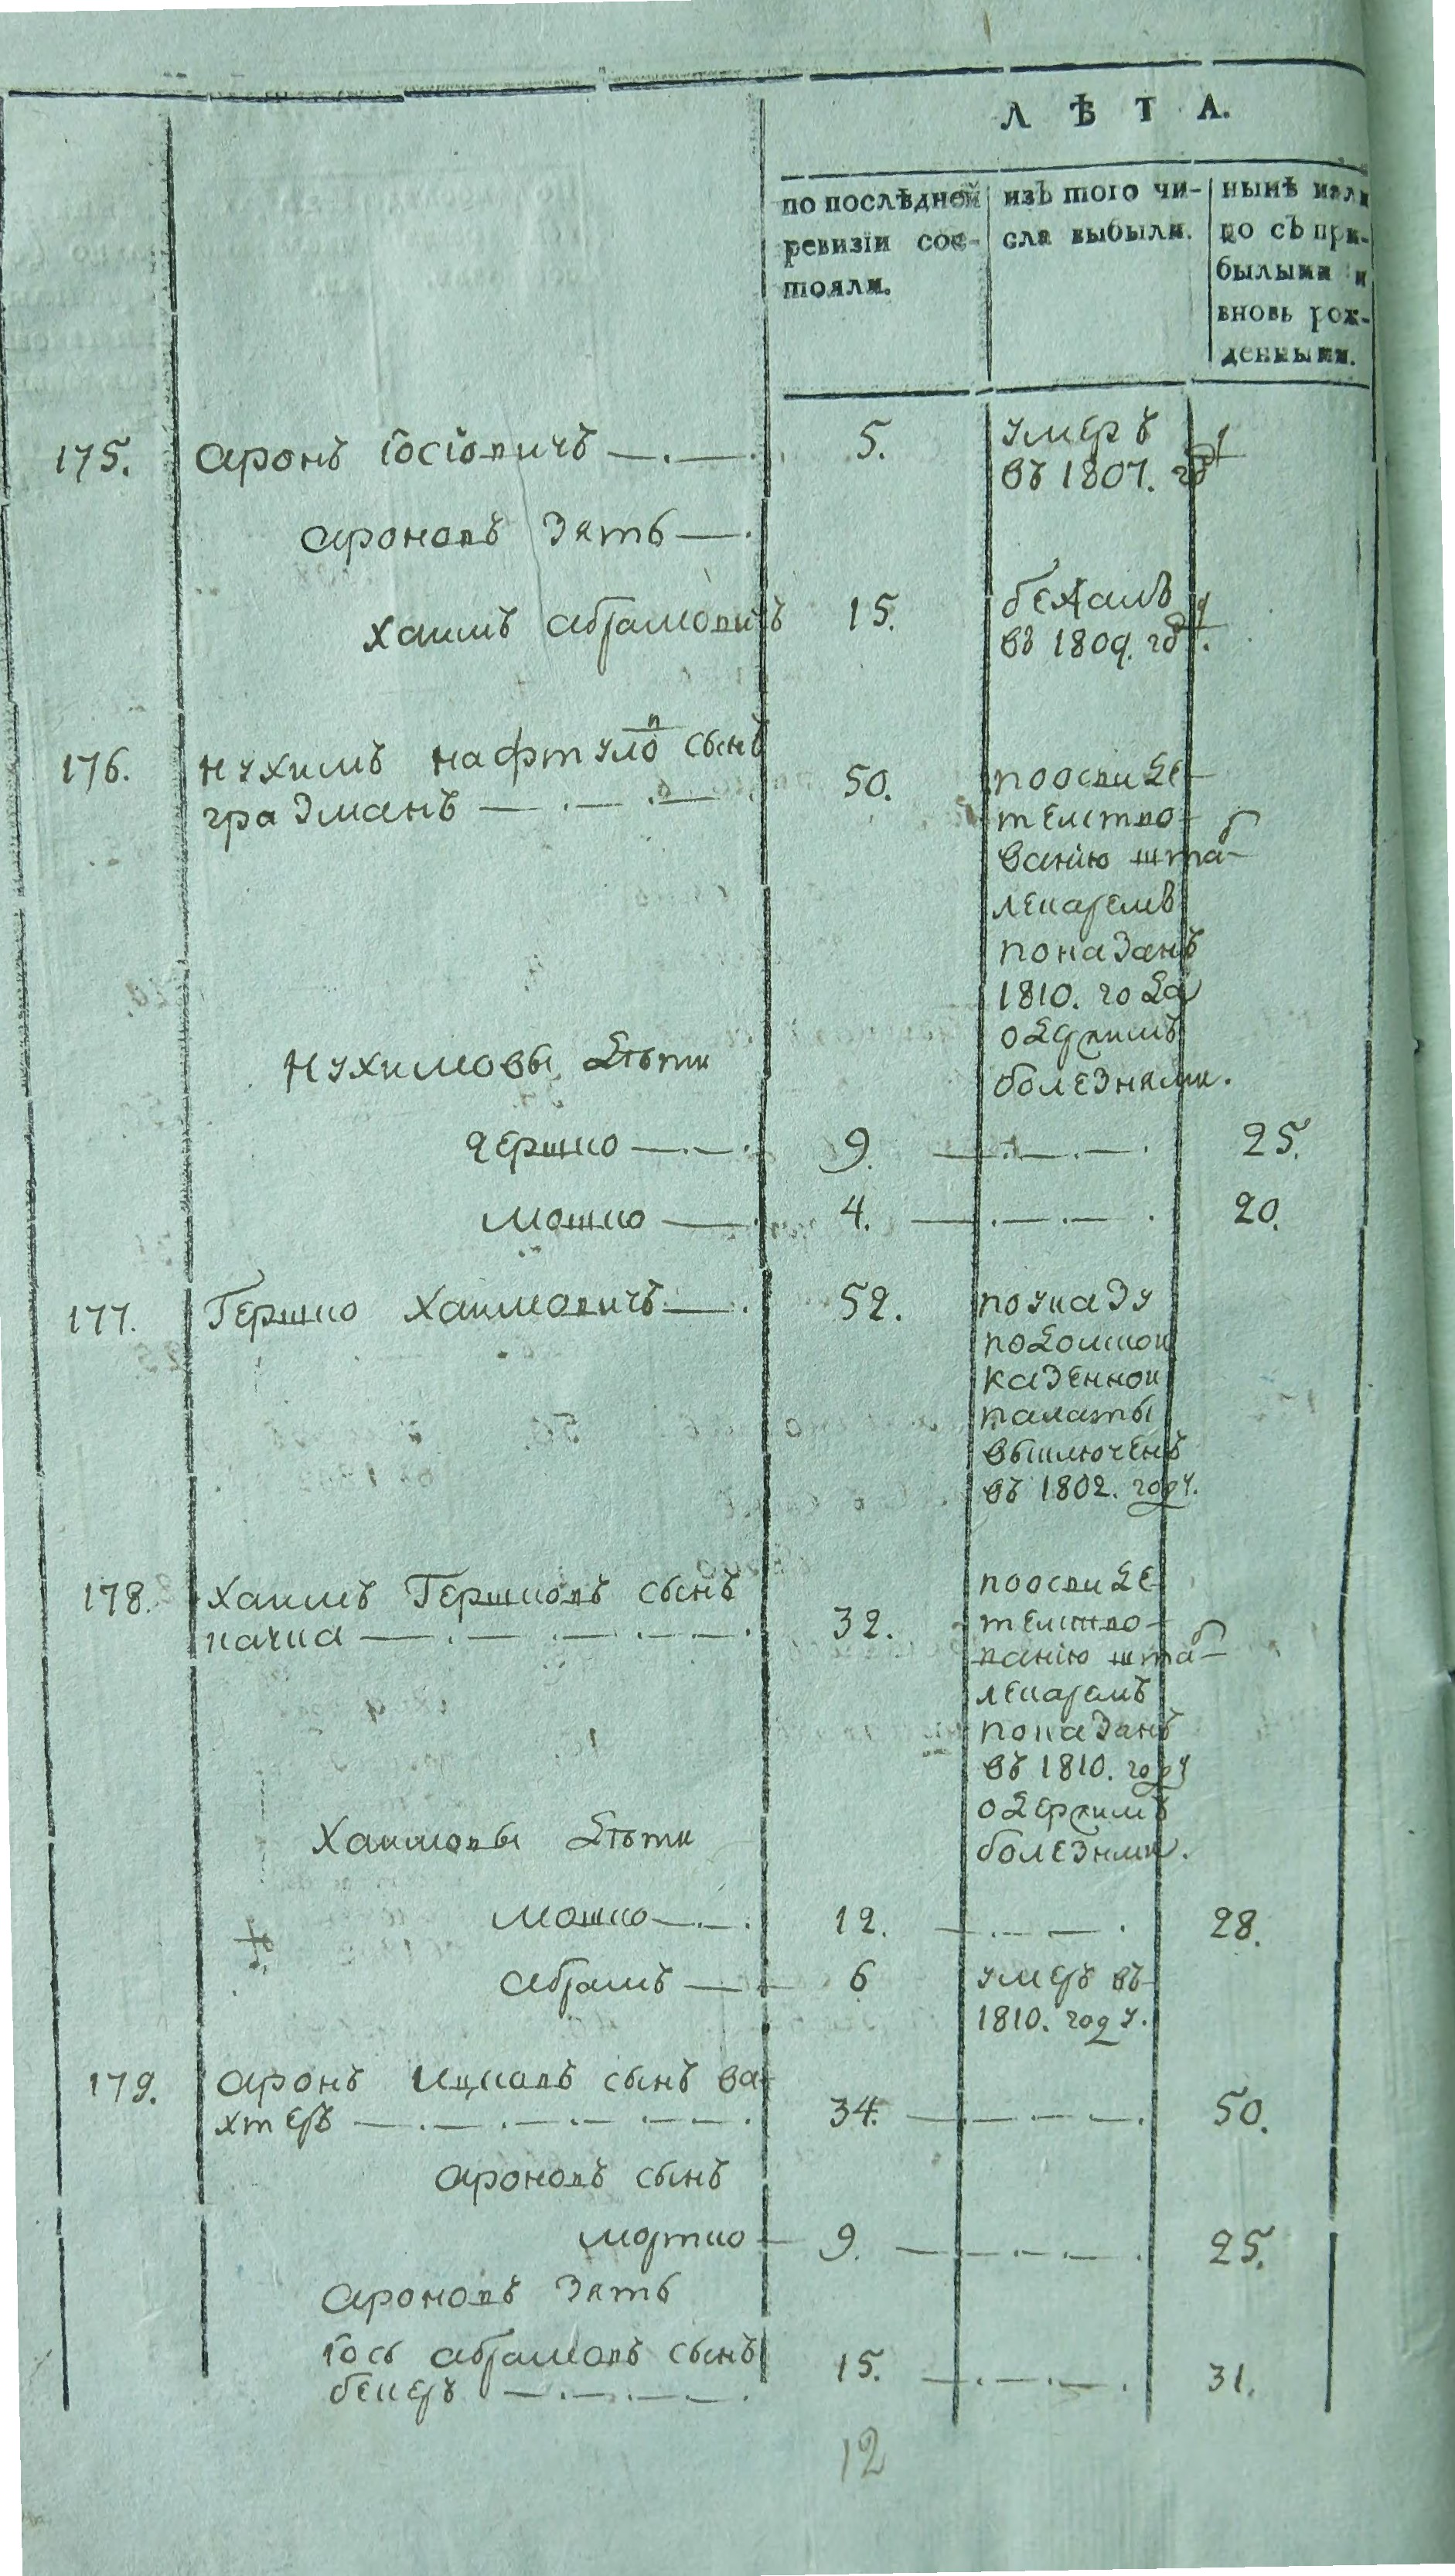 ЛѢТА.
по послѣдней ревизіи состояли.
изъ того числа выбыли.
нынѣ на лицо съ прибылыми и вновь рожденными.
175. Аронъ Іосіовичъ 5. умеръ
въ 1807. гду
Ароновъ зять
Хаимъ Абрамовичъ 15. бежалъ
въ 1809. гду.
176. Нухимъ Нафтуловъ сынъ
Гразманъ 50. по осви де-
телство-
ванию штаб
лекаремъ
показанъ
1810. года
одержимъ
болезнями.
Нухимовы дѣти
Гершко 9. 25.
Мошко 4. 20.
177. Гершко Хаимовичъ 52. по указу
подолской
казенной
палаты
выключенъ
въ 1802. году.
178. Хаимъ Гершковъ сынъ
качка 32. по осви де-
телство-
ванію штаб
лекаремъ
показанъ
въ 1810. году
одержимъ
болезнми.
Хаимовы дѣти
Мошко 12. 28.
Абрамъ 6 умеръ въ
1810. году.
179. Аронъ Ицковъ сынъ ва-
хтеръ 34. 50.
Ароновъ сынъ
Мортко 9. 25.
Ароновъ зять
Іось Абрамовъ сынъ
бекеръ 15. 31.
12